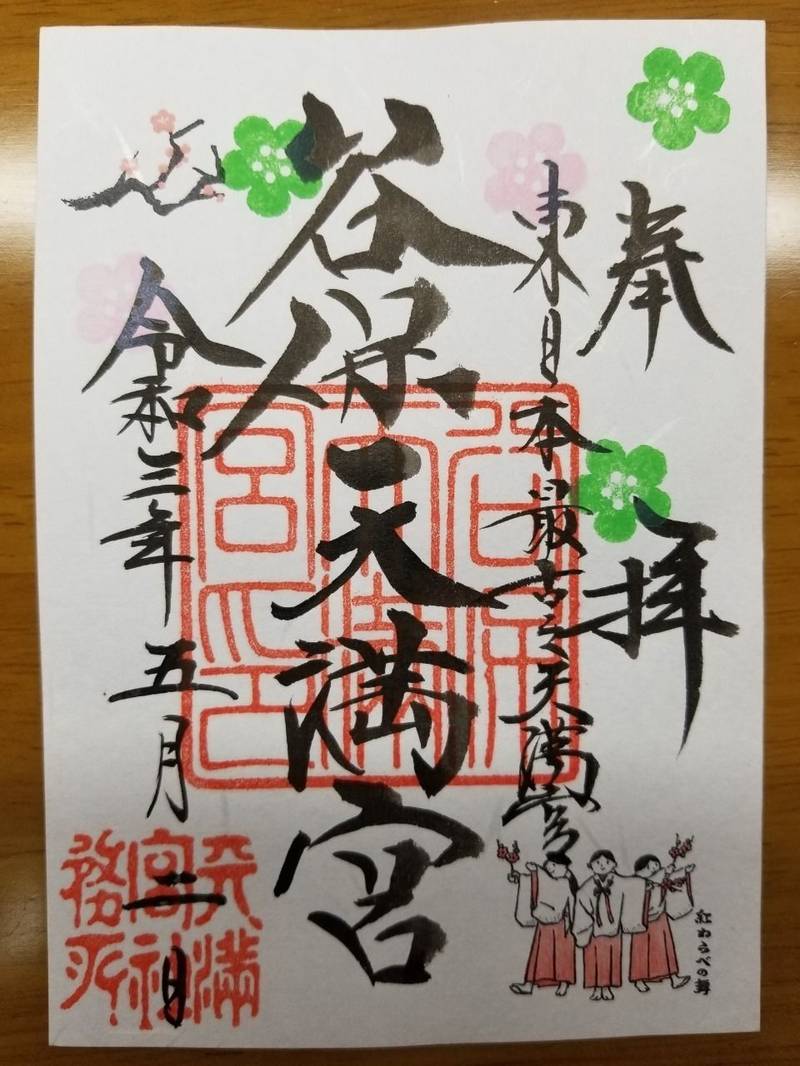 奉拝
東日本最古之天満宮
谷保天満宮
令和三年五月二日
谷保天満宮印
天満宮社務所
紅わらべの舞